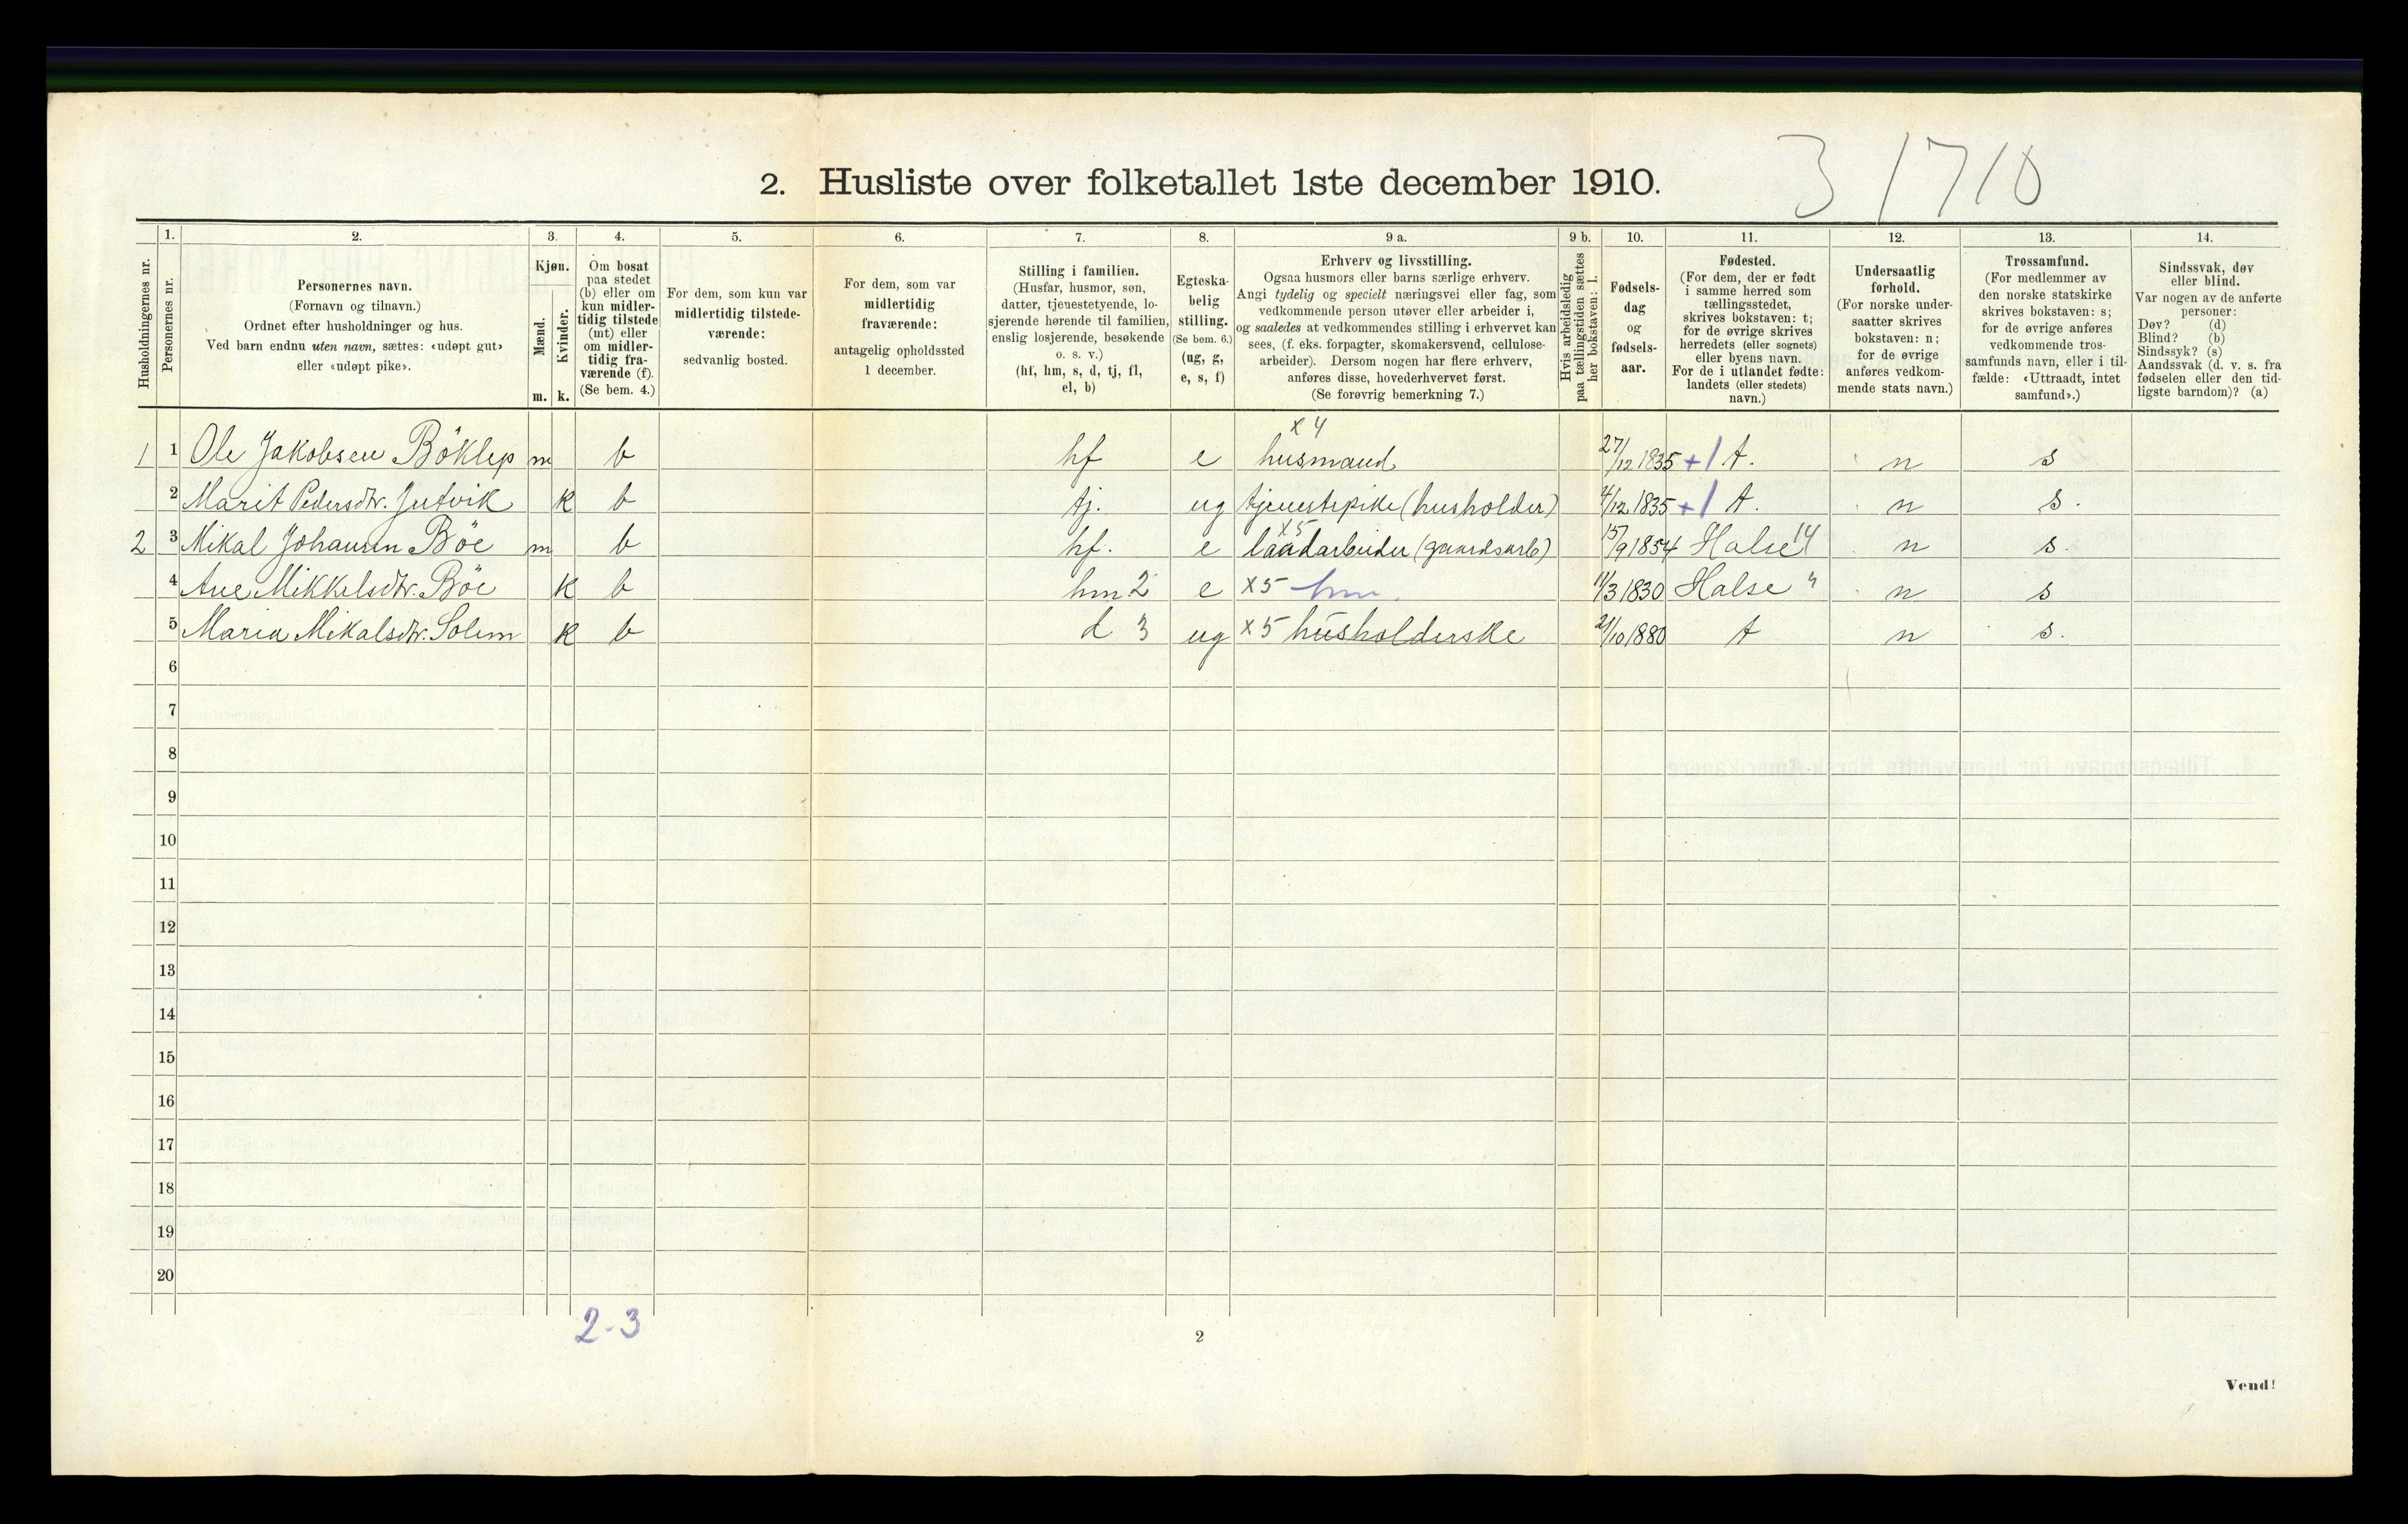 3 1710
2. Husliste over folketallet 1ste december 1910.
Husholdningernes nr.
1.
Personernes nr.
2.
Personernes navn.
(Fornavn og tilnavn.)
Ordnet efter husholdninger og hus.
Ved barn endnu uten navn, sættes: «udøpt gut»
eller «udøpt pike».
3.
Kjøn.
Mænd.
Kvinder.
m. k.
4.
Om bosat
paa stedet
(b) eller om
kun midler-
tidig tilstede
(mt) eller
om midler-
tidig fra-
værende (f).
(Se bem. 4.)
5.
For dem, som kun var
midlertidig tilstede-
værende:
sedvanlig bosted.
6.
For dem, som var
midlertidig
fraværende:
antagelig opholdssted
1 december.
7.
Stilling i familien.
(Husfar, husmor, søn,
datter, tjenestetyende, lo-
sjerende hørende til familien,
enslig losjerende, besøkende
o. s. v.)
(hf, hm, s, d, tj, fl,
el, b)
8.
Egteska-
belig
stilling.
(Se bem. 6.)
(ug, g,
e, s, f)
9 a.
Erhverv og livsstilling.
Ogsaa husmors eller barns særlige erhverv.
Angi tydelig og specielt næringsvei eller fag, som
vedkommende person utøver eller arbeider i,
og saaledes at vedkommendes stilling i erhvervet kan
sees, (f. eks. forpagter, skomakersvend, cellulose-
arbeider). Dersom nogen har flere erhverv,
anføres disse, hovederhvervet først.
(Se forøvrig bemerkning 7.)
9 b.
Hvis arbeidsledig
paa tællingstiden sættes
her bokstaven: l.
10.
Fødsels-
dag
og
fødsels-
aar.
11.
Fødested.
(For dem, der er født
i samme herred som
tællingsstedet,
skrives bokstaven: t;
for de øvrige skrives
herredets (eller sognets)
eller byens navn.
For de i utlandet fødte:
landets (eller stedets)
navn.)
12.
Undersaatlig
forhold.
(For norske under-
saatter skrives
bokstaven: n;
for de øvrige
anføres vedkom-
mende stats navn.)
13.
Trossamfund.
(For medlemmer av
den norske statskirke
skrives bokstaven: s;
for de øvrige anføres
vedkommende tros-
samfunds navn, eller i til-
fælde: «Uttraadt, intet
samfund».)
14.
Sindssvak, døv
eller blind.
Var nogen av de anførte
personer:
Døv? (d)
Blind? (b)
Sindssyk? (s)
Aandssvak (d. v. s. fra
fødselen eller den tid-
ligste barndom)? (a)
x 4
1 1 Ole Jakobsen Böklep m b hf e husmand 27/12 1835 +1 t. n s
2 Marit Pedersdtr. Jutvik k b tj. ug tjenestepike (husholder) 4/12 1835 +1 t. n s.
x5
2 3 Mikal Johansen Böe m b hf. e landarbeider (gaardsarb) 15/9 1854 Halse 14 n s.
4 Ane Mikkelsdtr. Böe k b hm 2 e x5 hm. 11/3 1830 Halse " n s
5 Maria Mikalsdtr. Solem k b d 3 ug x5 husholderske 21/10 1880 t n s.
6
7
8
9
10
11
12
13
14
15
16
17
18
19
20
2-3
2
Vend!